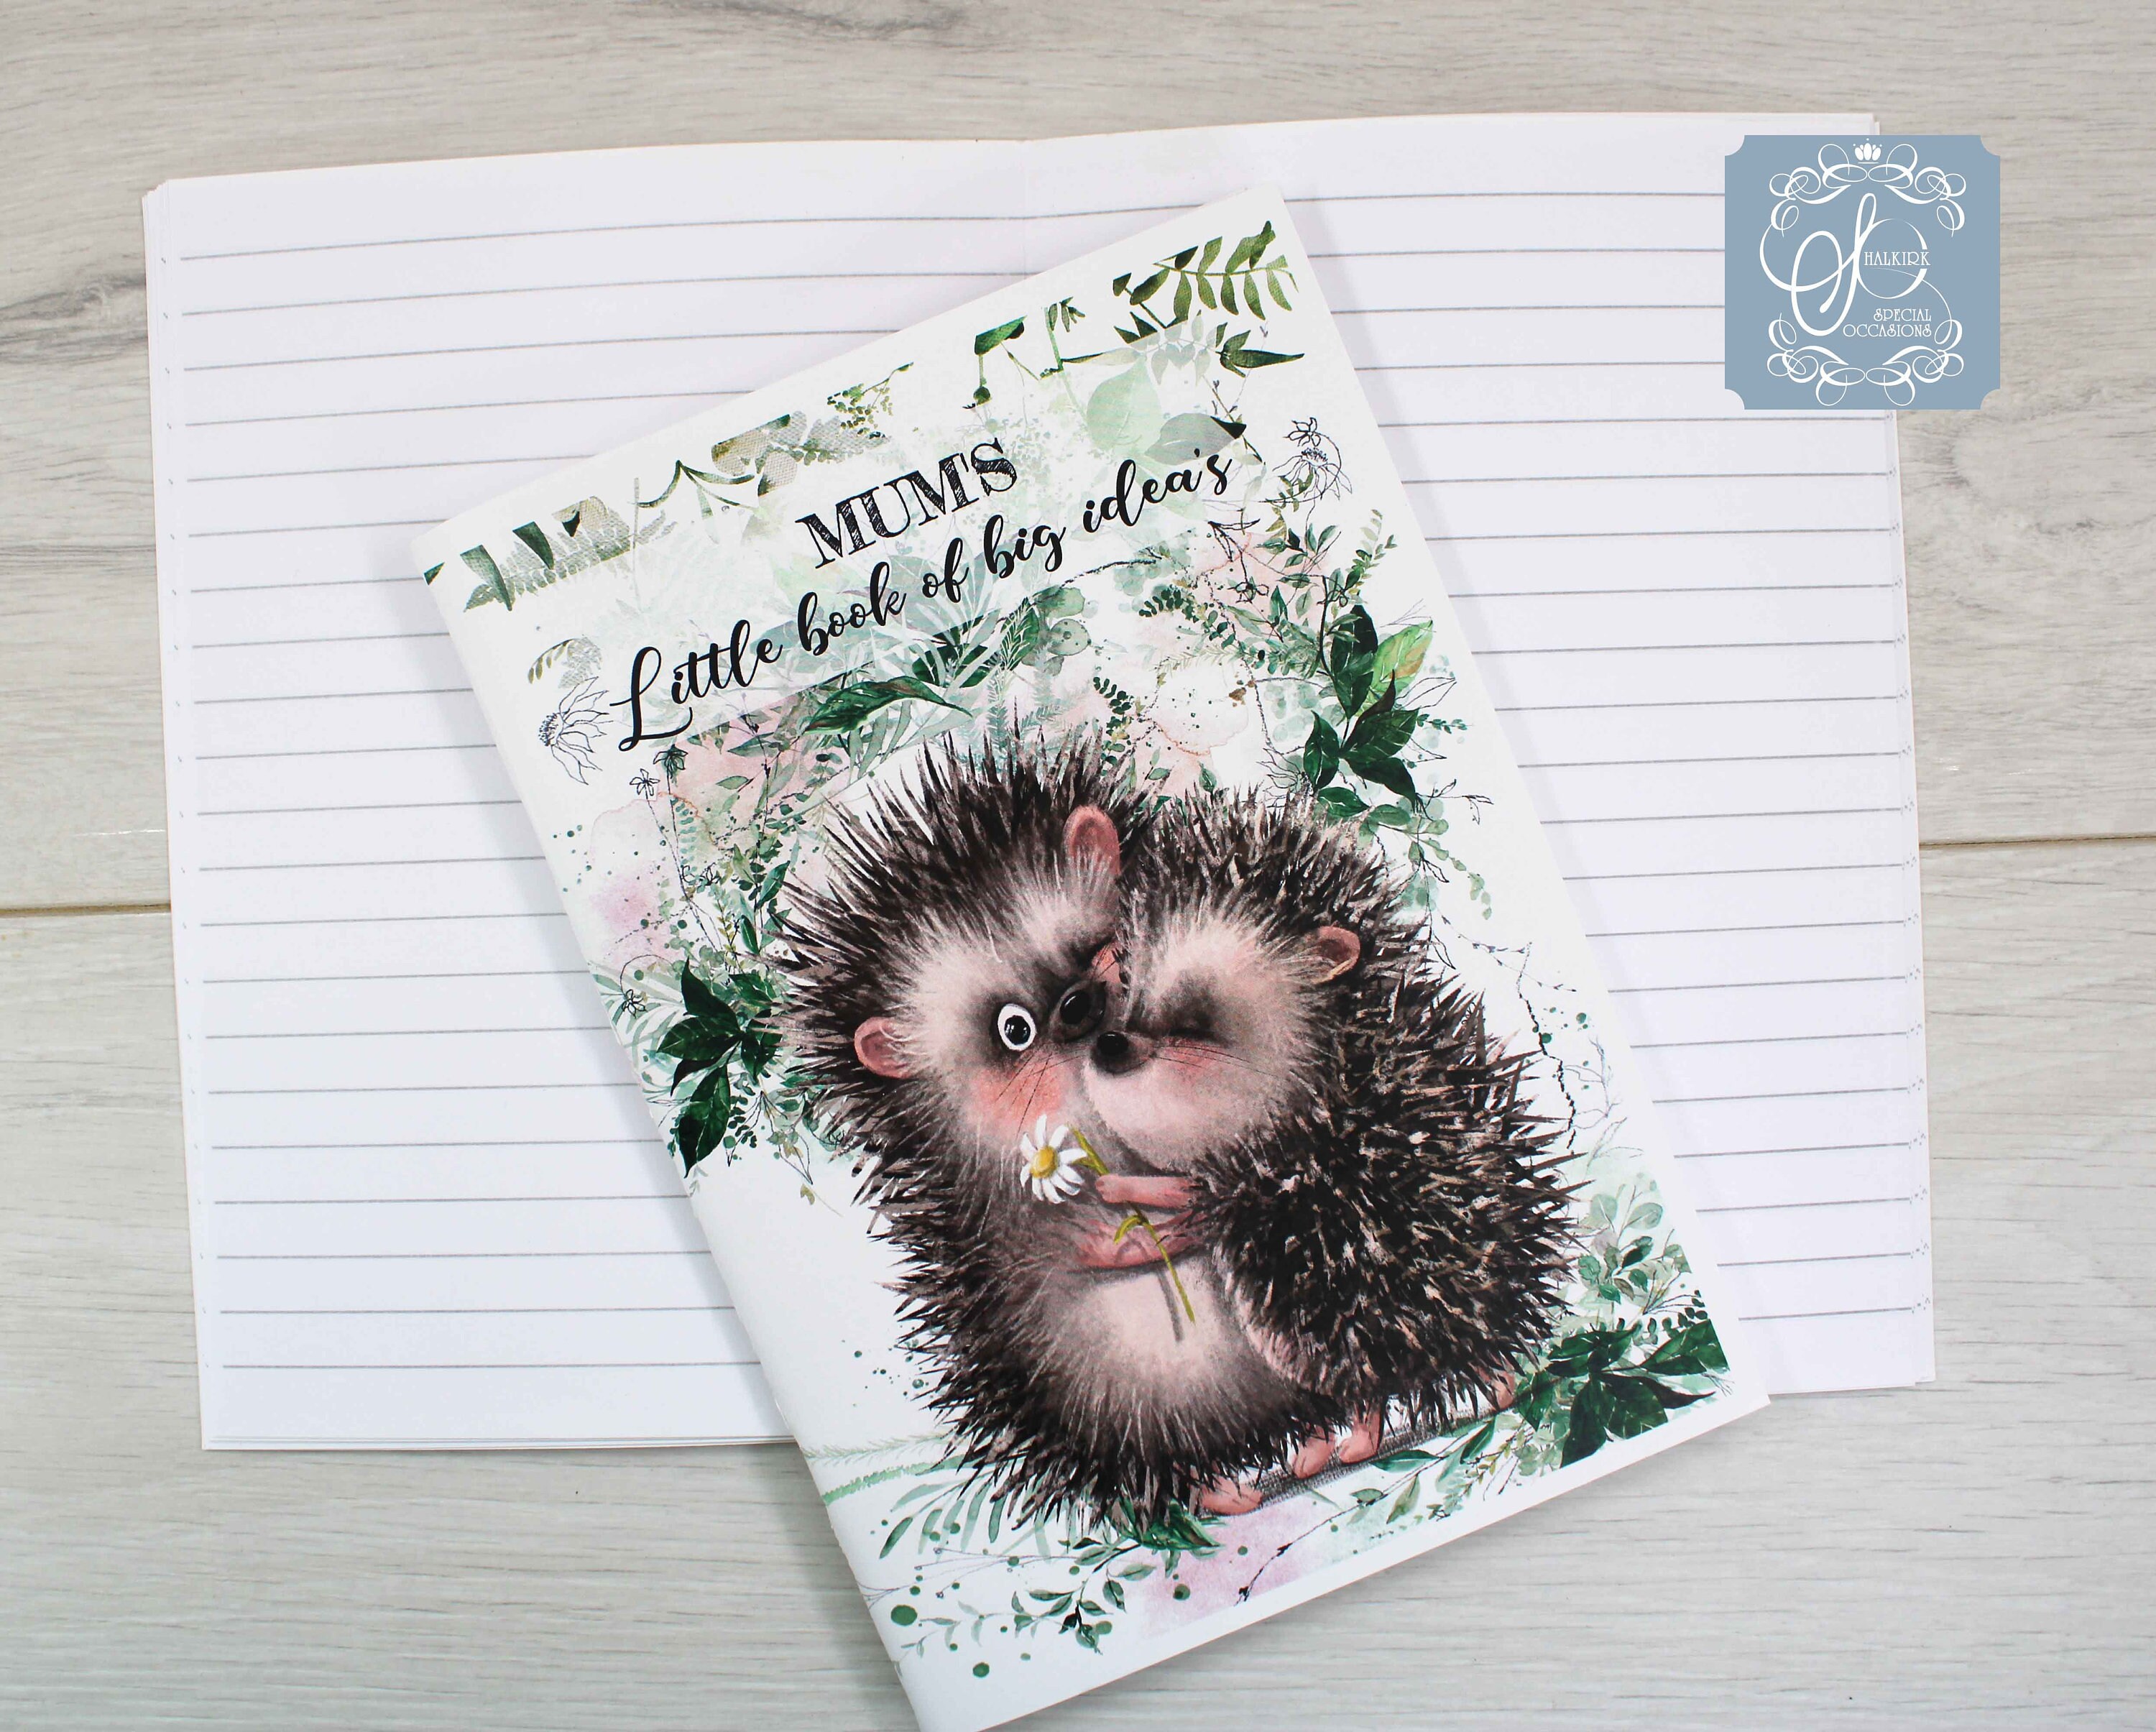 MUM'S
Little book of big idea's
HALKIRK
SPECIAL
OCCASIONS